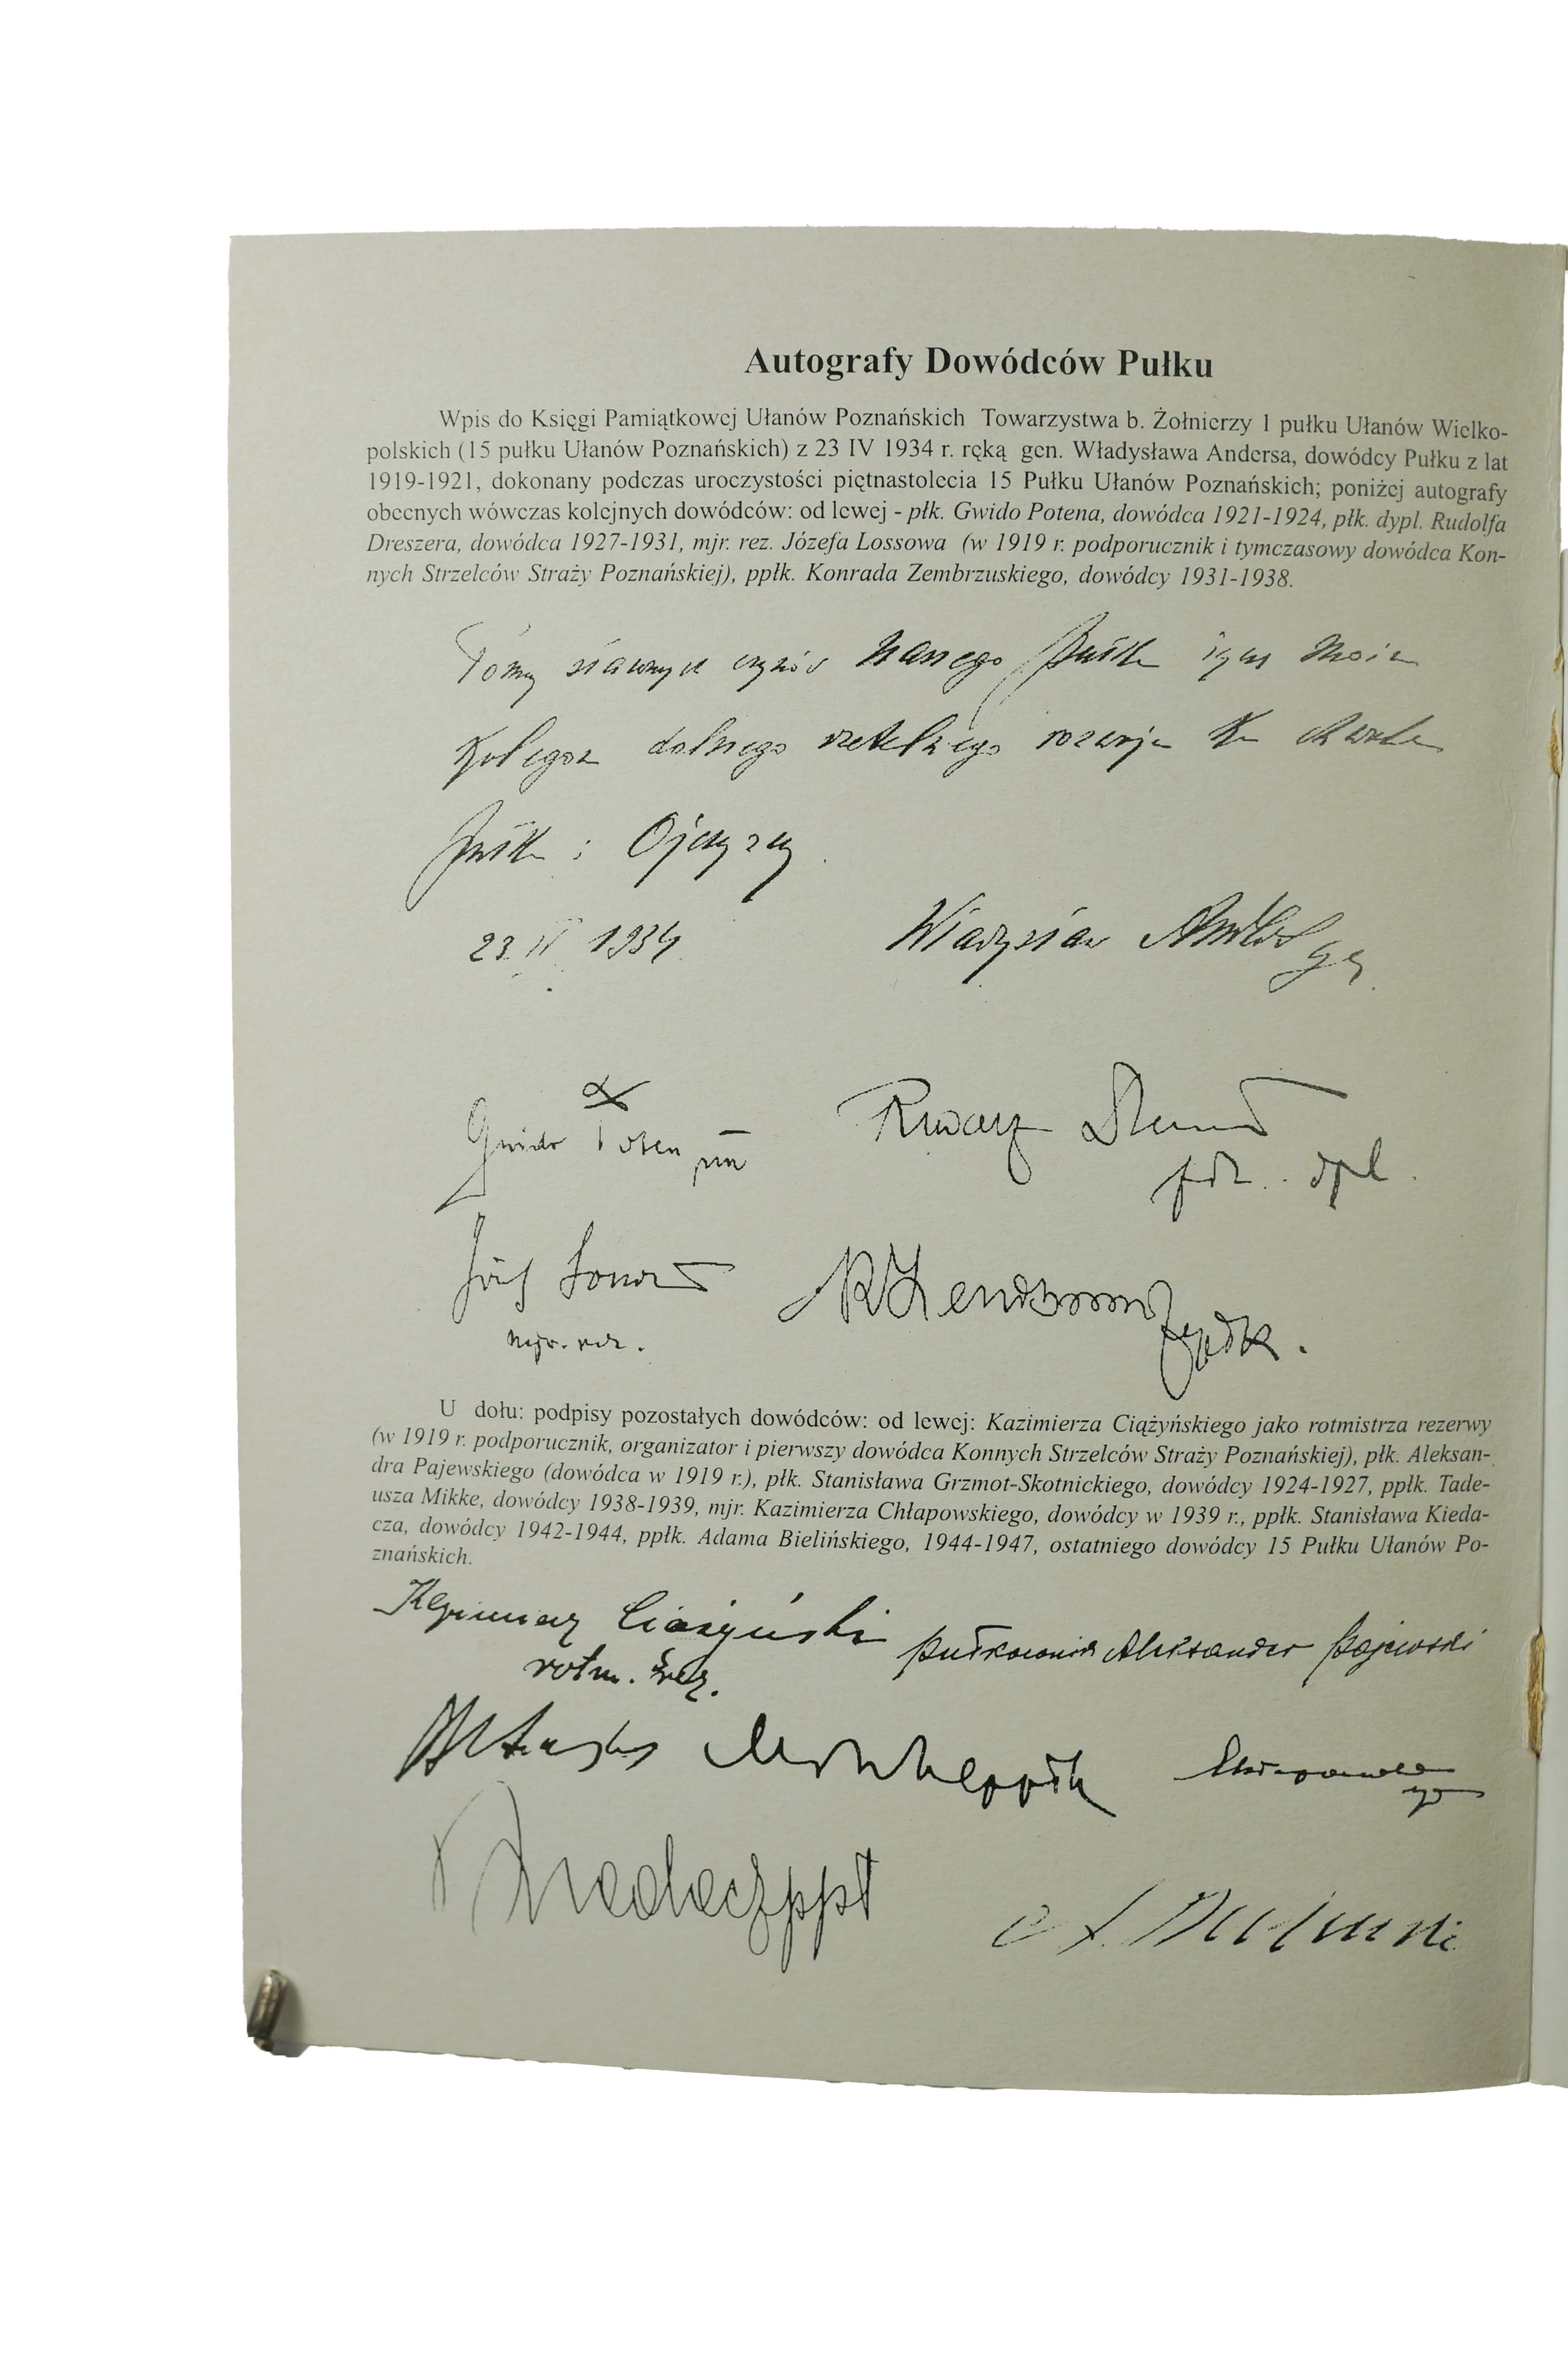 Autografy Dowódców Pułku
Wpis do Księgi Pamiątkowej Ułanów Poznańskich Towarzystwa b. Żołnierzy 1 pułku Ułanów Wielko-
polskich (15 pułku Ułanów Poznańskich) z 23 IV 1934 r. ręką gen. Władysława Andersa, dowódcy Pułku z lat
1919-1921, dokonany podczas uroczystości piętnastolecia 15 Pułku Ułanów Poznańskich; poniżej autografy
obecnych wówczas kolejnych dowódców: od lewej - płk. Gwido Potena, dowódca 1921-1924, płk. dypl. Rudolfa
Dreszera, dowódca 1927-1931, mjr. rez. Józefa Lossowa (w 1919 r. podporucznik i tymczasowy dowódca Kon-
nych Strzelców Straży Poznańskiej), ppłk. Konrada Zembrzuskiego, dowódcy 1931-1938.
sławnych czynów naszego Pułku
Kolegom dalszego rozwoju ku chwale
Pułku i Ojczyzny
23 IV 1934 Władysław Anders
Gwido Poten
płk. dypl.
Józef Lossow
mjr. rez.
U dołu: podpisy pozostałych dowódców: od lewej: Kazimierza Ciążyńskiego jako rotmistrza rezerwy
(w 1919 r. podporucznik, organizator i pierwszy dowódca Konnych Strzelców Straży Poznańskiej), płk. Aleksan-
dra Pajewskiego (dowódca w 1919 r.), płk. Stanisława Grzmot-Skotnickiego, dowódcy 1924-1927, ppłk. Tade-
usza Mikke, dowódcy 1938-1939, mjr. Kazimierza Chłapowskiego, dowódcy w 1939 r., ppłk. Stanisława Kieda-
cza, dowódcy 1942-1944, ppłk. Adama Bielińskiego, 1944-1947, ostatniego dowódcy 15 Pułku Ułanów Po-
znańskich.
Kazimierz Ciążyński pułkownik Aleksander Pajewski
rotm. rez.